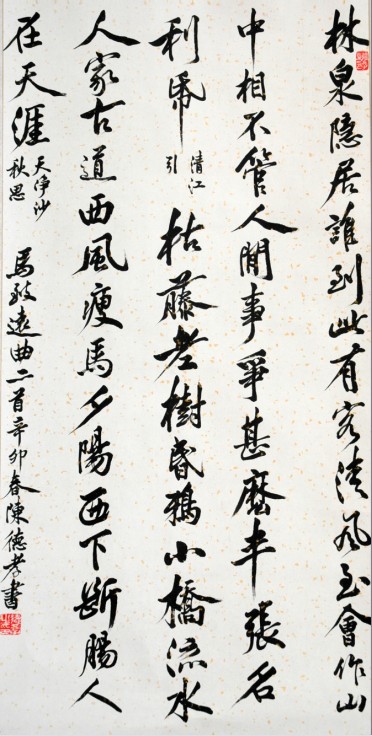 林泉隱居誰到此有客清風至會作山
中相不管人間事爭甚麼半張名
利帋清江引枯藤老樹昏鴉小橋流水
人家古道西風瘦馬夕陽西下斷腸人
在天涯天淨沙秋思馬致遠曲二首辛卯春陳德孝書